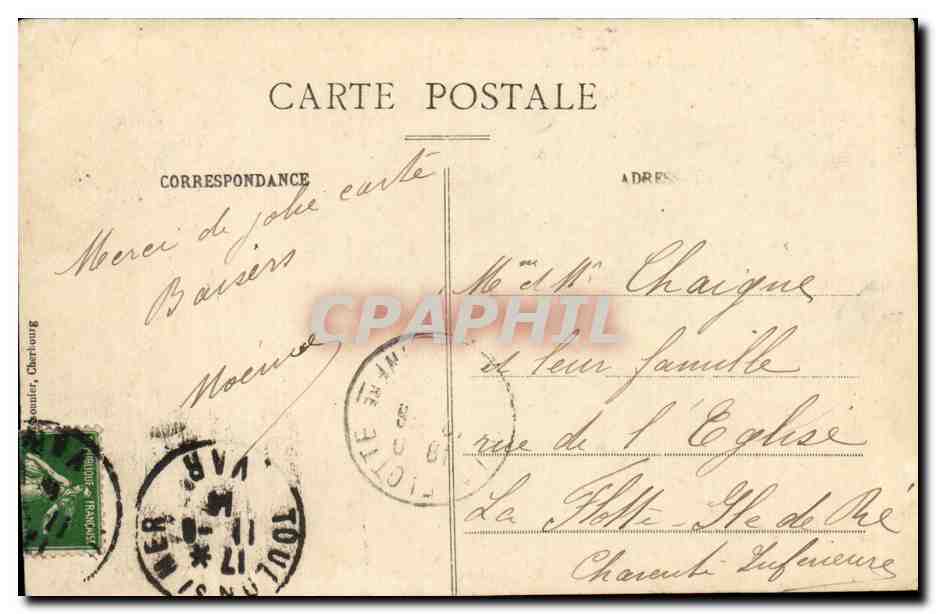 CARTE POSTALE
CORRESPONDANCE
Merci de jolie carte
Baisers
ADRES
Mme et Mr Chaigne
et leur famille
rue de l'Eglise
La Flotte - Ile de Ré
Charente Inférieure
CPAPHIL
, Cherbourg
FRANÇAISE
TOULON S/ MER
VAR
17
11
FLOTTE
INFRE
18